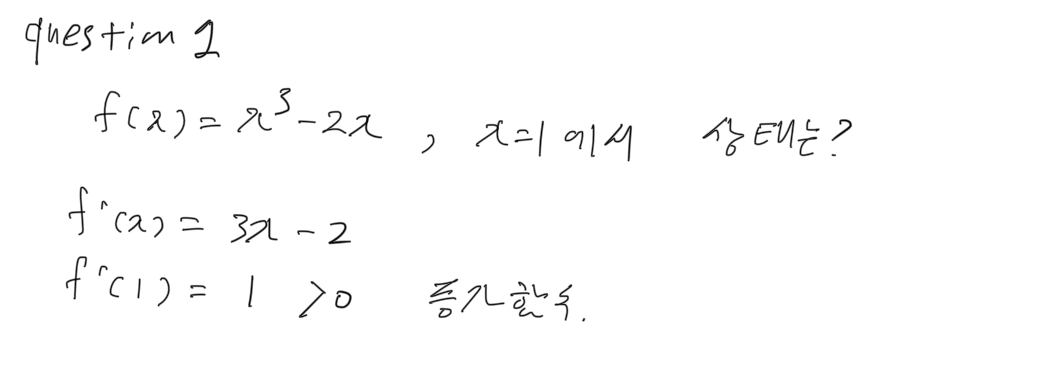 question 1
f(x) = x³ - 2x , x=1 에서 상태는?
f'(x) = 3x - 2
f'(1) = 1 >0 증가함수.